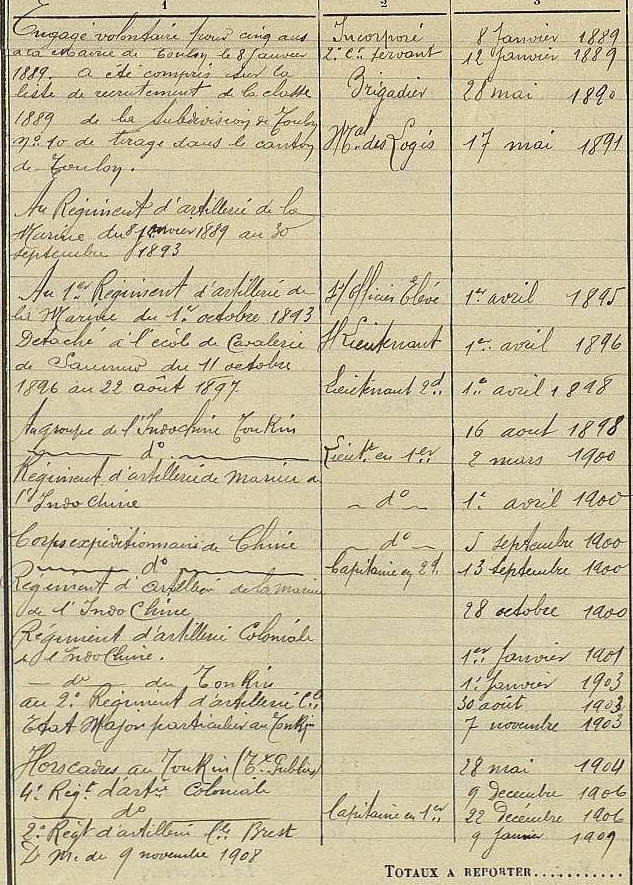 1 2 3
Engagé volontaire pour cinq ans Incorporé 8 Janvier 1889
à la Mairie de Toulon, le 8 janvier 2e Ct servant 12 Janvier 1889
1889. a été compris sur la
liste de recrutement de la classe Brigadier 28 mai 1890
1889 de la subdivision de Toulon
no 10 de tirage dans le canton Mal des Logis 17 mai 1891
de Toulon.
Au Régiment d'artillerie de la
Marine du 8 janvier 1889 au 30
septembre 1893
Au 1er Régiment d'artillerie de S/officier Elève 1er avril 1895
la Marine du 1er octobre 1893
Détaché à l'école de Cavalerie S/Lieutenant 1er avril 1896
de Saumur du 11 octobre
1896 au 22 août 1897. Lieutenant 2d. 1er avril 1898
Au groupe de l'Indochine Tonkin 16 aout 1898
do Lieutt en 1er 2 mars 1900
Régiment d'artillerie de marine de
l'Indo Chine do 1er avril 1900
Corps expéditionnaire de Chine do 5 septembre 1900
do Capitaine en 2d. 13 septembre 1900
Régiment d'artillerie de la marine
de l'Indo Chine 28 octobre 1900
Régiment d'artillerie Coloniale
de l'Indo Chine. 1er Janvier 1901
do du Tonkin 1er Janvier 1903
au 2e Régiment d'artillerie Cle 30 août 1903
Etat Major particulier au Tonkin 7 novembre 1903
Hors cadres au Tonkin (Tx Publics) 28 mai 1904
4e Régt d'artie Coloniale 9 Décembre 1906
do Capitaine en 1er 22 Décembre 1906
2e Régt d'artillerie Cle Brest 9 Janvier 1909
D. M. du 9 novembre 1908
TOTAUX A REPORTER...........